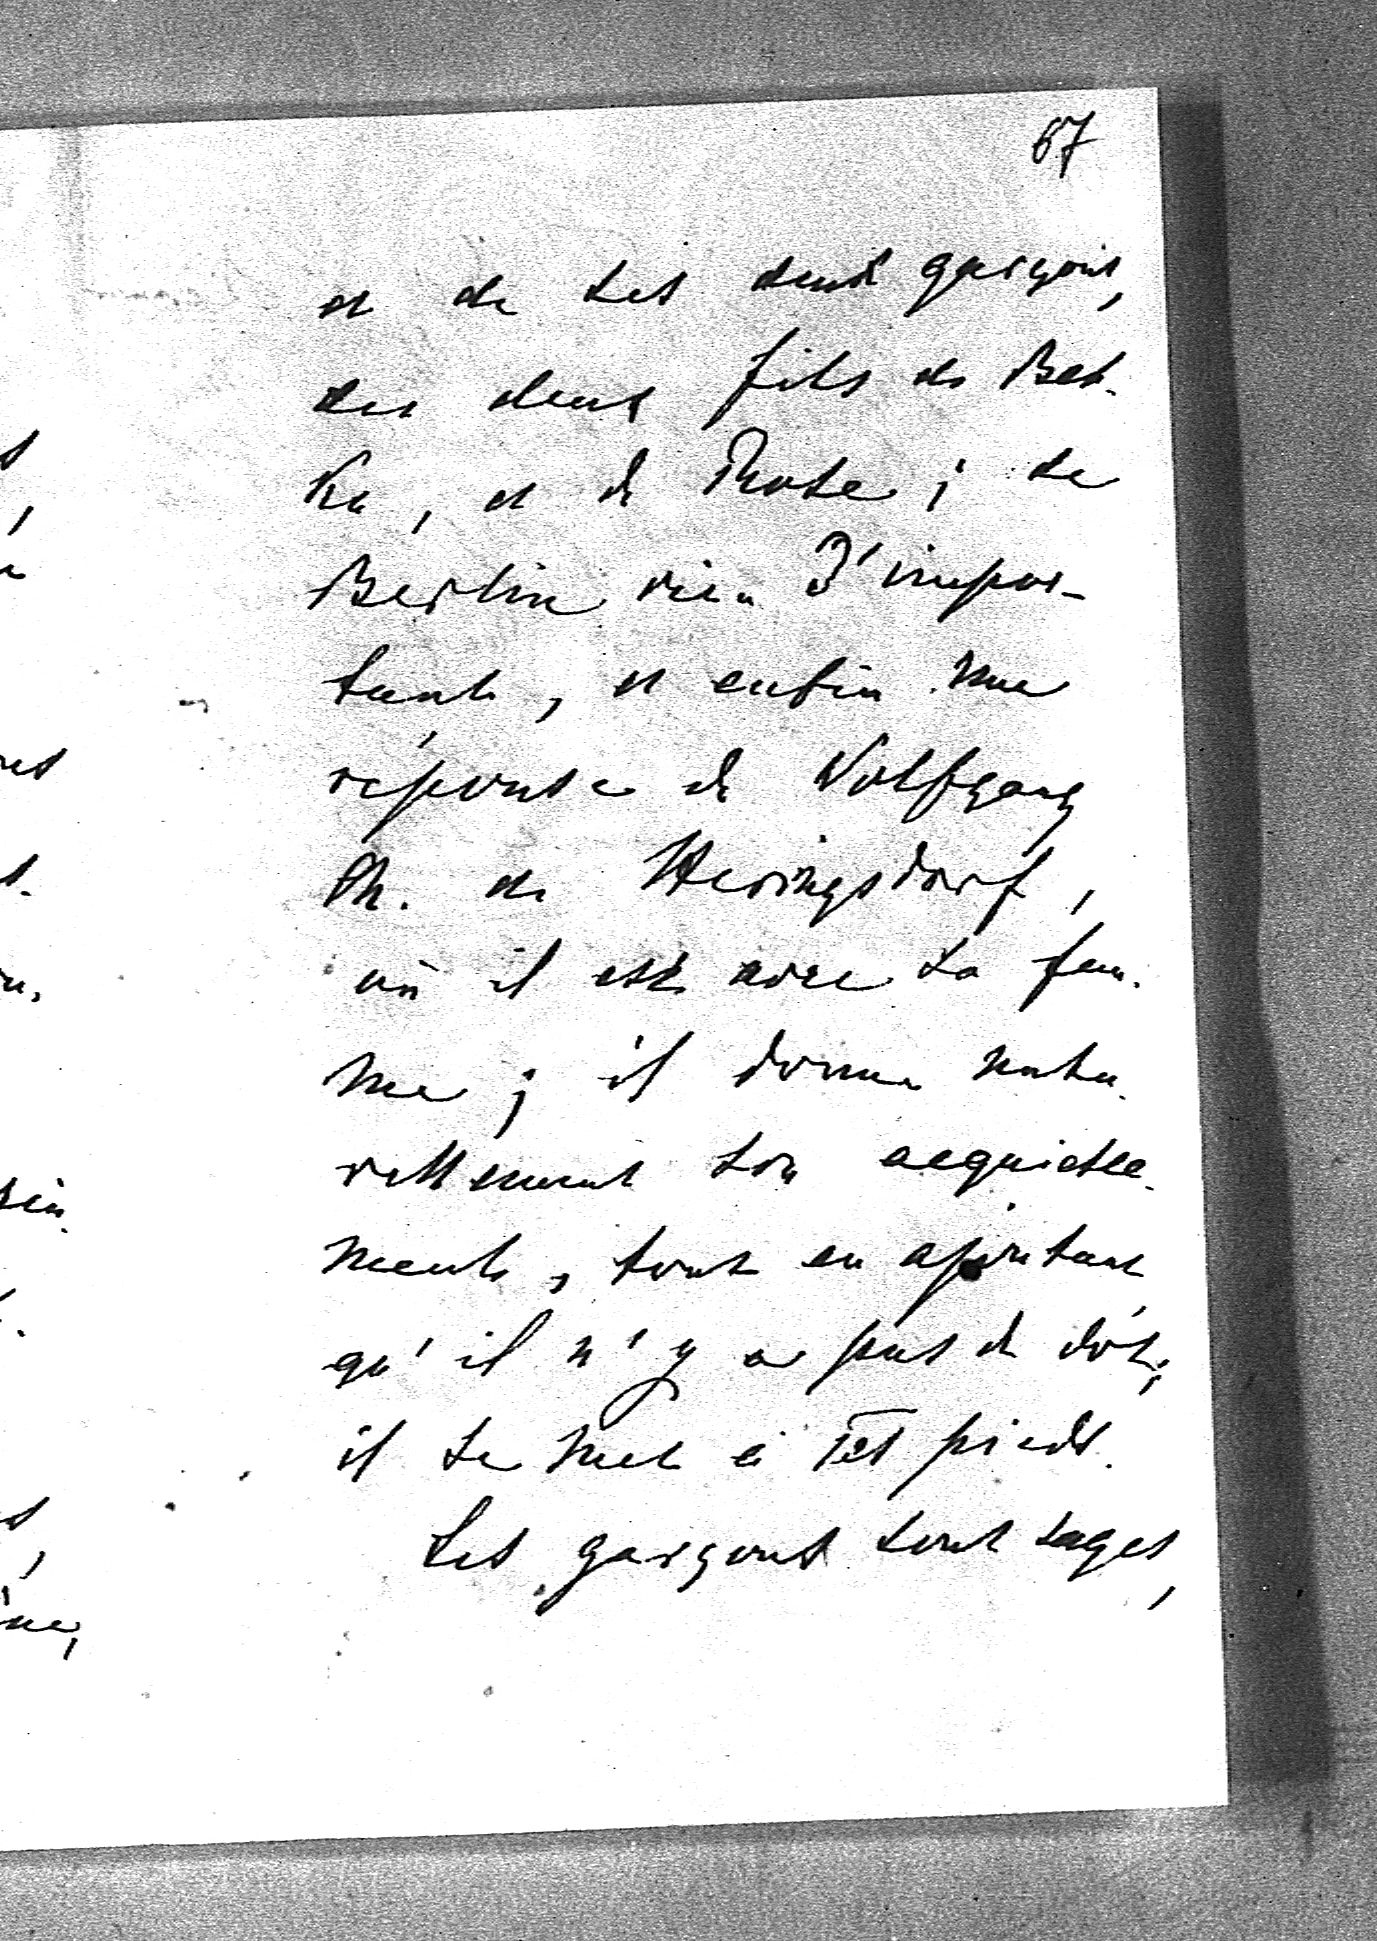 67
et de ses deux garçons,
des deux fils de Bet-
ka, et de Rose ; de
Berlin rien d'impor-
tant, et enfin une
réponse de Wolfgang
Th. de Heringsdorf,
où il est avec sa fem-
me ; il donne natu-
rellement son acquiesce-
ment, tout en ajoutant
qu'il n'y a pas de dot ;
il se met à Tes pieds.
Les garçons sont sages,